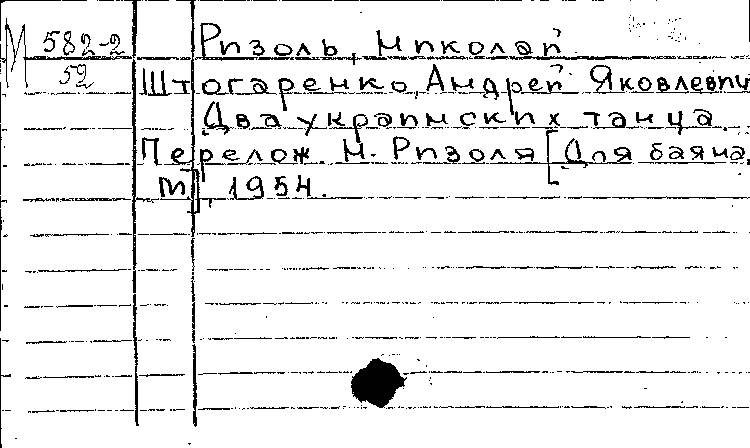 М 582-2 Ризоль, Николай
52 Штогаренко, Андрей Яковлевич
Два украинских танца.
Перелож. Н. Ризоля [Для баяна.
М], 1954.